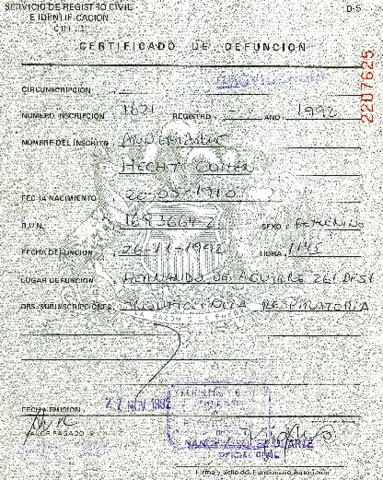 SERVICIO DE REGISTRO CIVIL
E IDENTIFICACION
CHILE
D-5
CERTIFICADO DE DEFUNCION
2207625
CIRCUNSCRIPCION :
NUMERO INSCRIPCION : 1621 REGISTRO : AÑO : 1992
NOMBRE DEL INSCRITO : ANNEMARIE
HECHT COHEN
FECHA NACIMIENTO : 20-05-1910
R.U.N. : SEXO : FEMENINO
FECHA DEFUNCION : 26-11-1992 HORA : 1145
LUGAR DEFUNCION : HERNANDO DE AGUIRRE 261
OBS./SUBINSCRIPCIONES : RESPIRATORIA
FECHA EMISION : 27 NOV 1992
VALOR PAGADO $
OFICIAL CIVIL
Firma y Sello del Funcionario Autorizado